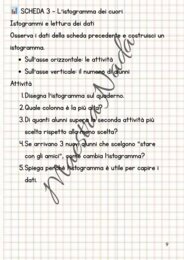 SCHEDA 3 - L'istogramma dei cuori
Istogrammi e lettura dei dati
Osserva i dati della scheda precedente e costruisci un
istogramma.
• Sull'asse orizzontale: le attività
• Sull'asse verticale: il numero di alunni
Attività
1. Disegna l'istogramma sul quaderno.
2. Quale colonna è la più alta?
3. Di quanti alunni supera la seconda attività più
scelta rispetto alla meno scelta?
4. Se arrivano 3 nuovi alunni che scelgono "stare
con gli amici", come cambia l'istogramma?
5. Spiega perché l'istogramma è utile per capire i
dati.
Maestra Nada
9